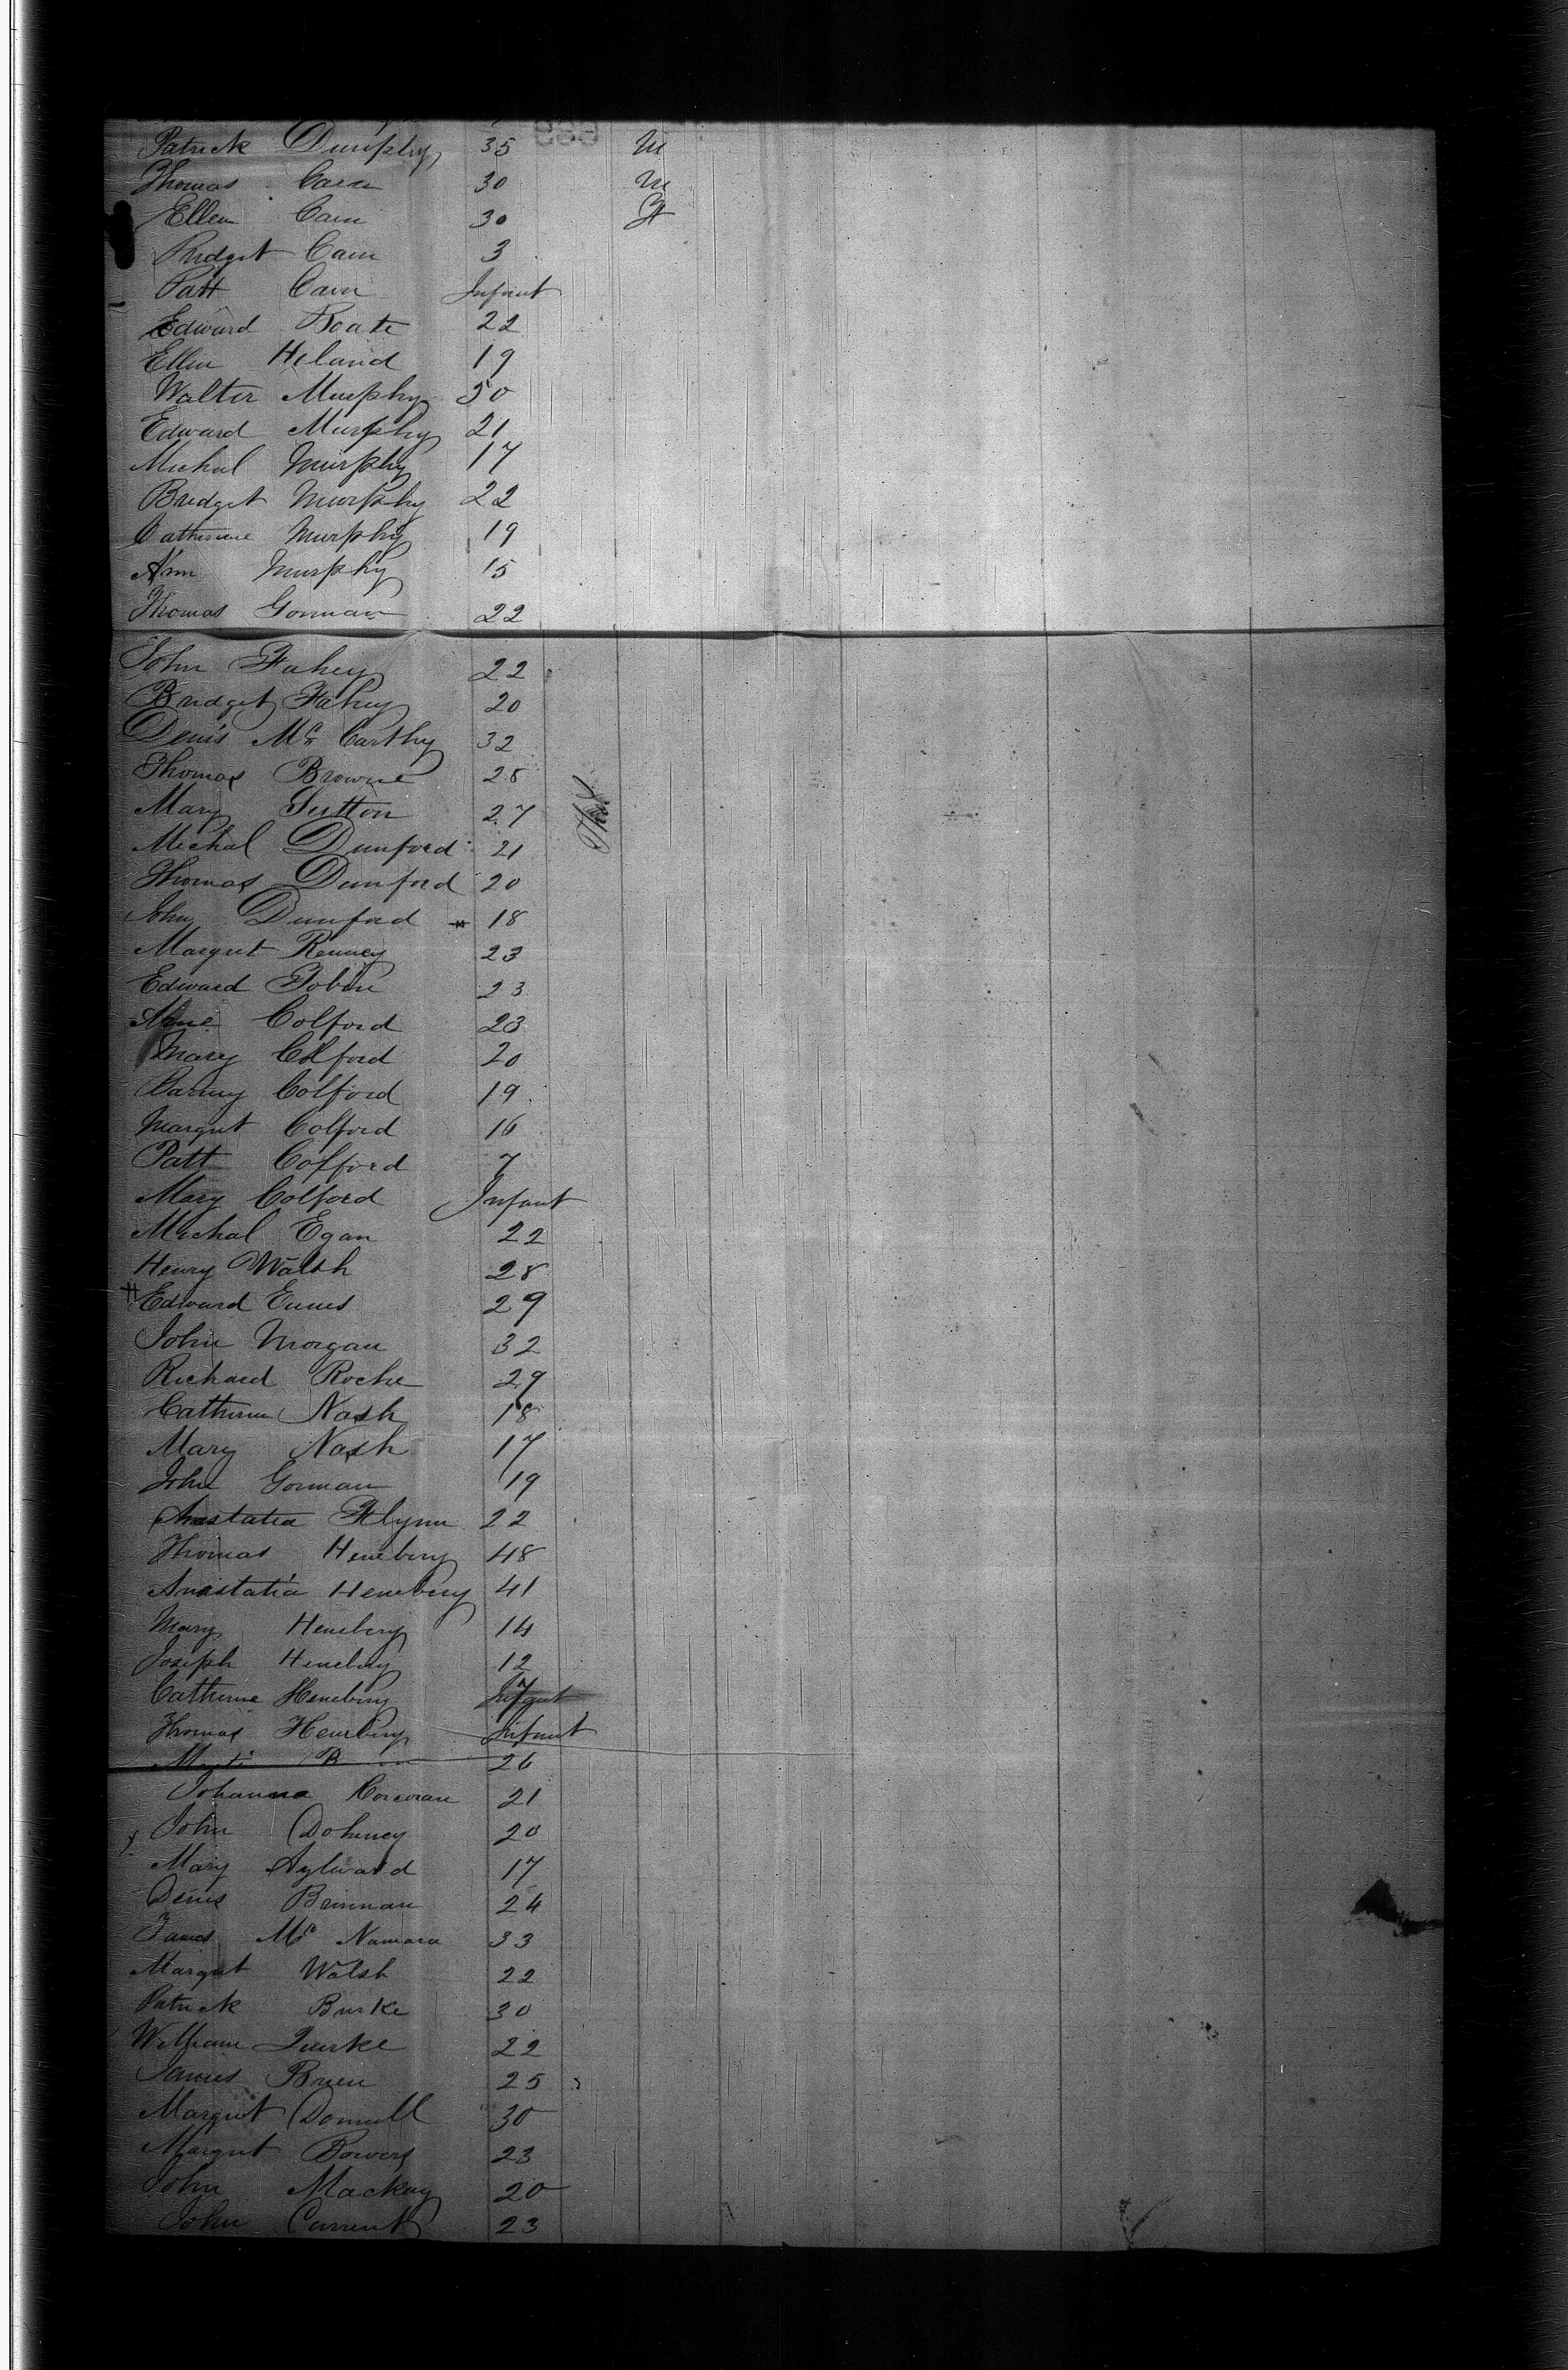 Patrick Dunphy 35 M
Thomas Cain 30 M
Ellen Cain 30 F
Bridget Cain 3
Patt Cain Infant
Edward Roate 22
Ellen Heland 19
Walter Murphy 50
Edward Murphy 21
Michal Murphy 17
Bridget Murphy 22
Catherine Murphy 19
Ann Murphy 15
Thomas Gorman 22
John Fahey 22
Bridget Fahey 20
Denis Mc Carthy 32
Thomas Browne 28
Mary Sutton 27
Michal Dunford 21
Thomas Dunford 20
John Dunford 18
Margret Renney 23
Edward Tobin 23
Anne Colford 23
Mary Colford 20
Barny Colford 19
Margret Colford 16
Patt Colford 7
Mary Colford Infant
Michal Egan 22
Henry Walsh 28
Edward Ennes 29
John Morgan 32
Richard Roche 29
Catherine Nash 18
Mary Nash 17
John Gorman 19
Anastatia Flynn 22
Thomas Henebery 48
Anastatia Henebery 41
Mary Henebery 14
Joseph Henebery 12
Catherine Henebery 7
Thomas Henebery Infant
26
Johanna Corcoran 21
John Dohney 20
Mary Aylward 17
Denis Brennan 24
James Mc Namara 33
Margret Walsh 22
Patrick Burke 30
William Quirke 22
James Brien 25
Margret Donnell 30
Margret Bowers 23
John Mackay 20
John Current 23